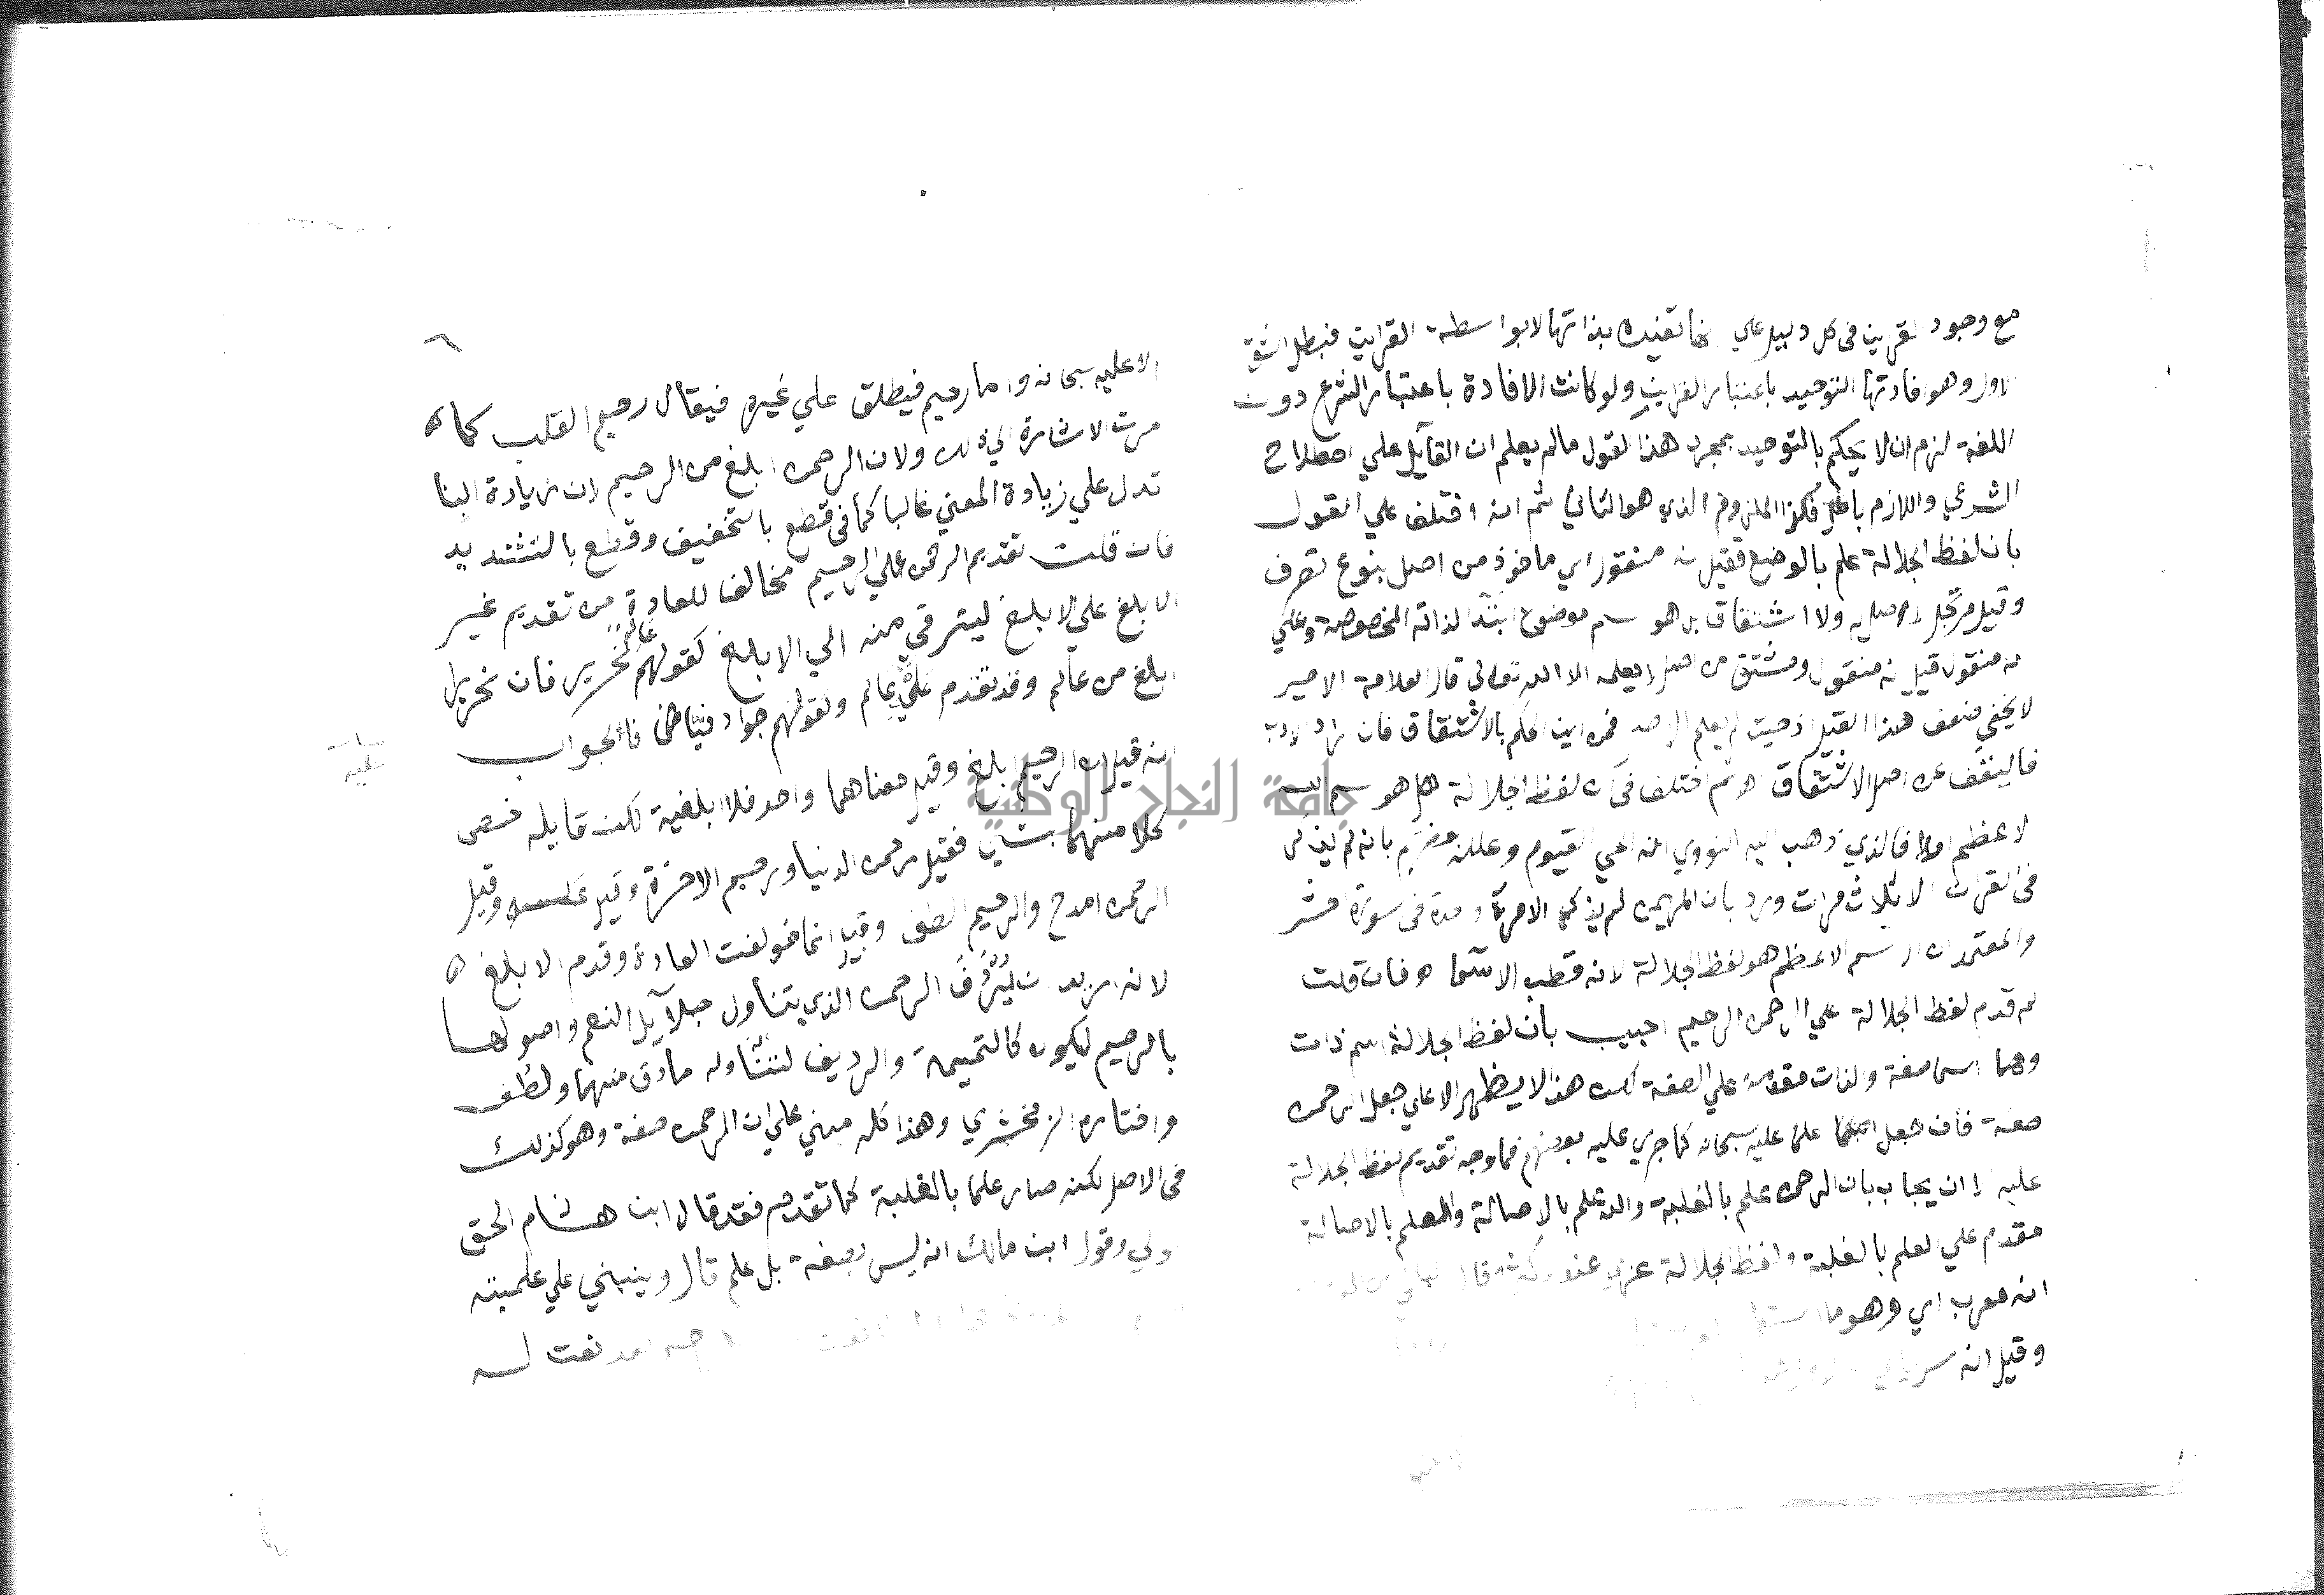 مع وجود القراين في كل دليل علي انها تفيده بذاتها لابواسطة القراين فبطل الشق
الاول وهو افادتها التوحيد باعتبار القراين ولو كانت الافادة باعتبار الشرع دون
اللغة لزم ان لا يحكم بالتوحيد بمجرد هذا القول مالم يعلم ان القآيل علي اصطلاح
الشرعي واللازم باطل فكذا الملزوم الذي هو الثاني ثم انه اختلف علي القول
بان لفظ الجلالة علم بالوضع فقيل انه منقول اي ماخوذ من اصل بنوع تصرف
وقيل مرتجل لا اصل له ولا اشتقاق بل هو اسم موضوع ابتدآ لذاته المخصوصة وعلي
انه منقول قيل انه منقول ومشتق من اصل لا يعلمه الا الله تعالي قال العلامة الامير
لا يخفي ضعف هذا القيل اذ حيث لم يعلم الاصل فمن اين الحكم بالاشتقاق فان
فاليقف عن اصل الاشتقاق ه ثم اختلف في ان لفظ الجلالة هل هو اسم الله
الاعظم اولا فالذي ذهب اليه النووي انه الحي القيوم وعلله بعضهم بانه لم يذكر
في القران الا ثلاث مرات ورد بان المهيمن لم يذكر الا مرة واحدة في سورة الحشر
والمعتمد ان الاسم الاعظم هو لفظ الجلالة لانه قطب الاسمآ ه فان قلت
لم قدم لفظ الجلالة علي الرحمن الرحيم اجيب بان لفظ الجلالة اسم ذات
وهما اسما صفة والذات مقدمة علي الصفة لكن هذا لا يظهر الا علي جعل الرحمن
صفة فان جعل علما عليه سبحانه كما جري عليه بعضهم فما وجه تقديم لفظ الجلالة
عليه الا ان يجاب بان الرحمن علم بالغلبة والله علم بالاصالة والعلم بالاصالة
مقدم علي العلم بالغلبة ولفظ الجلالة عربي عند
انه معرب اي وهو ما
وقيل انه
٦
الا عليه سبحانه واما رحيم فيطلق علي غيره فيقال رحيم القلب كما ه
مرت الاشارة الي ذلك ولان الرحمن ابلغ من الرحيم لان زيادة البنا
تدل علي زيادة المعني غالبا كما في قطع بالتخفيف وقطع بالتشديد
فان قلت تقديم الرحمن علي الرحيم مخالف للعادة من تقديم غير
الابلغ علي الابلغ ليترقي منه الي الابلغ كقولهم عالم نحرير فان نحريرا
ابلغ من عالم وقد تقدم عليه عالم وكقولهم جواد فياض فالجواب
انه قيل ان الرحيم ابلغ وقيل معناهما واحد فلا ابلغية لكن قايله خص
كلا منهما بشي فقيل رحمن الدنيا ورحيم الاخرة وقيل عكسه وقيل
الرحمن امدح والرحيم الطف وقيل انما خولفت العادة وقدم الابلغ ه
لانه اريد ان يُرْدَفَ الرحمن الذي يتناول جلآيل النعم واصولها
بالرحيم ليكون كالتتميمة والرديف لتناوله مادق منها ولطف
واختاره الزمخشري وهذا كله مبني علي ان الرحمن صفة وهو كذلك
في الاصل لكنه صار علما بالغلبة كما تقدم فقد قال ابن هشام الحق
قول الاعلم وابن مالك انه ليس بصفة بل علم قال وينبني علي علميته
نعت له
جامعة النجاح الوطنية